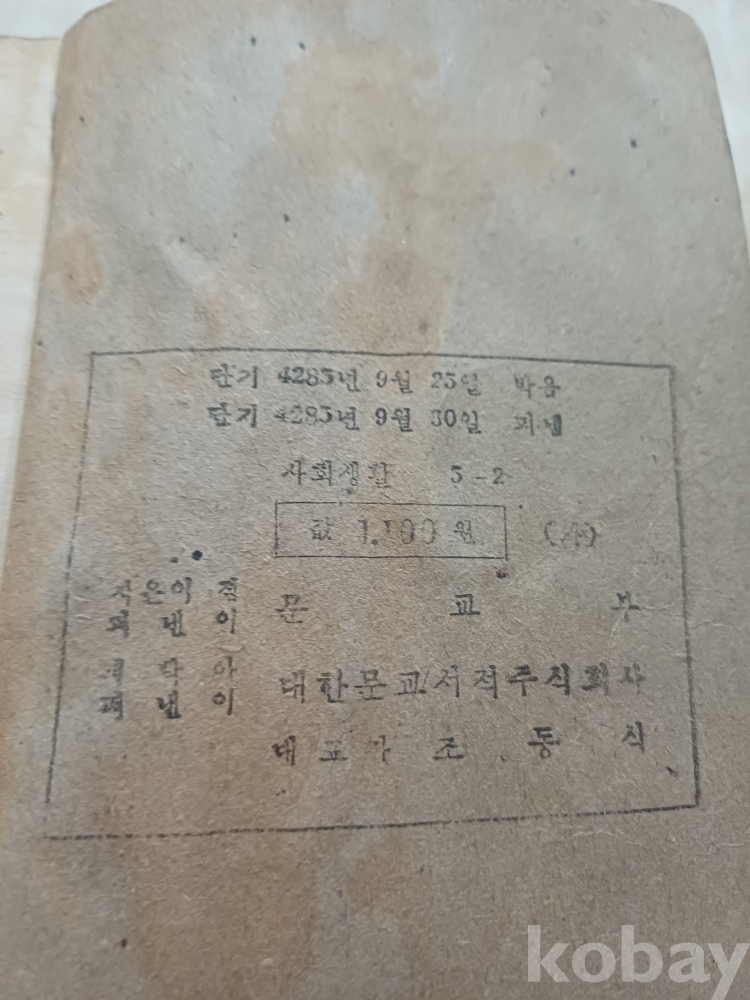 단기 4285년 9월 25일 박음
단기 4285년 9월 30일 펴냄
사회생활 5-2
값 1,100원
지은이 겸
펴낸이 문교부
펴낸이 대한문교서적주식회사
대표자 조동식
kobay